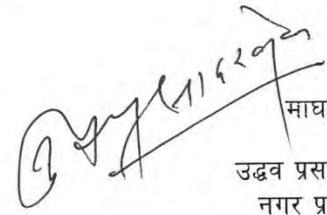 माघ
उद्धव प्रस
नगर प्र